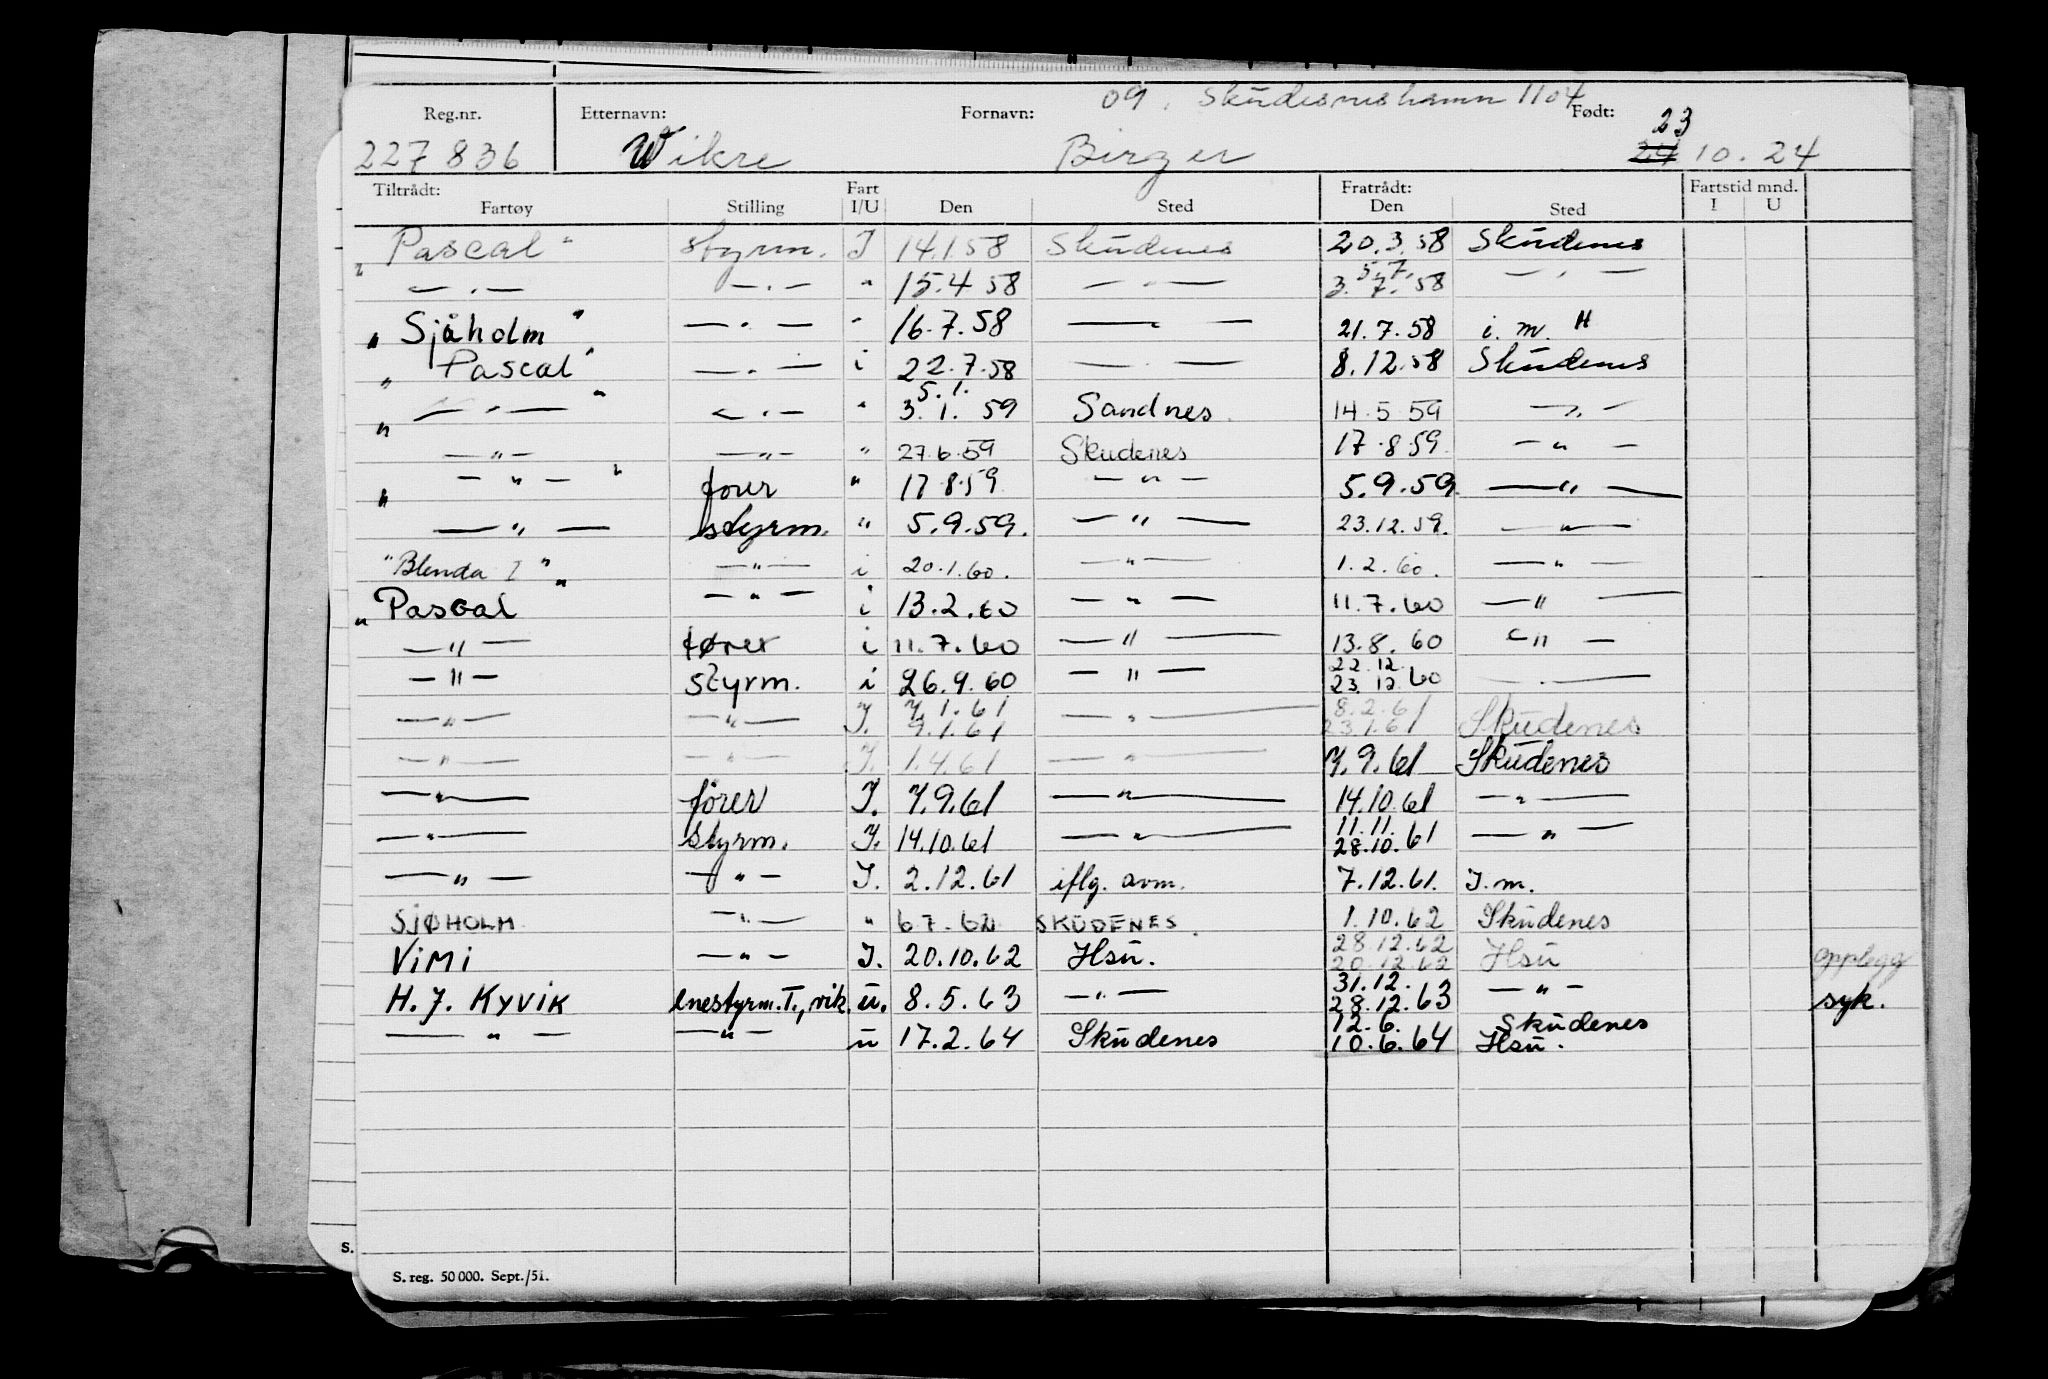 09. Skudesneshamn 1104
Reg.nr. Etternavn: Fornavn: Født:
23
227836 Wikre Birger 24 10.24
Tiltrådt: Fart Fratrådt: Fartstid mnd.
Fartøy Stilling I/U Den Sted Den Sted I U
"Pascal" styrm. I 14.1.58 Skudenes 20.3.58 Skudenes
— " — — " — " 15.4.58 — " — 5.7. 3.7.58 — " —
"Sjåholm" — " — " 16.7.58 — " — 21.7.58 i. m. H
"Pascal" — " — i 22.7.58 — " — 8.12.58 Skudenes
5.1.
" — " — " — " — " 3.1.59 Sandnes 14.5.59 — " —
— " — — " — " 27.6.59 Skudenes 17.8.59 — " —
" — " — " fører " 17.8.59 — " — 5.9.59. — " —
— " — styrm. " 5.9.59. — " — 23.12.59. — " —
"Blenda I" — " — i 20.1.60. — " — 1.2.60. — " —
"Pascal" — " — i 13.2.60 — " — 11.7.60 — " —
— " — fører i 11.7.60 — " — 13.8.60 — " —
— " — styrm. i 26.9.60 — " — 22.12. 23.12.60 — " —
— " — — " — I. 7.1.61 9.1.61 — " — 8.2.61 23.1.61 Skudenes
— " — — " — I. 1.4.61 — " — 7.9.61 Skudenes
— " — fører I. 7.9.61 — " — 14.10.61 — " —
— " — styrm. I. 14.10.61 — " — 11.11. 28.10.61 — " —
— " — — " — I. 2.12.61 iflg. avm. 7.12.61. I.m.
SJØHOLM — " — " 6.7.62 SKUDENES. 1.10.62 Skudenes
ViMi — " — I. 20.10.62 Hsu. 28.12.62 20.12.62 Hsu opplegg
H. J. KYViK enestyrm.T., vik. u. 8.5.63 — " — 31.12. 28.12.63 — " — syk.
— " — — " — u 17.2.64 Skudenes 12.6. Skudenes
10.6.64 Hsu.
S.
S. reg. 50 000. Sept./51.